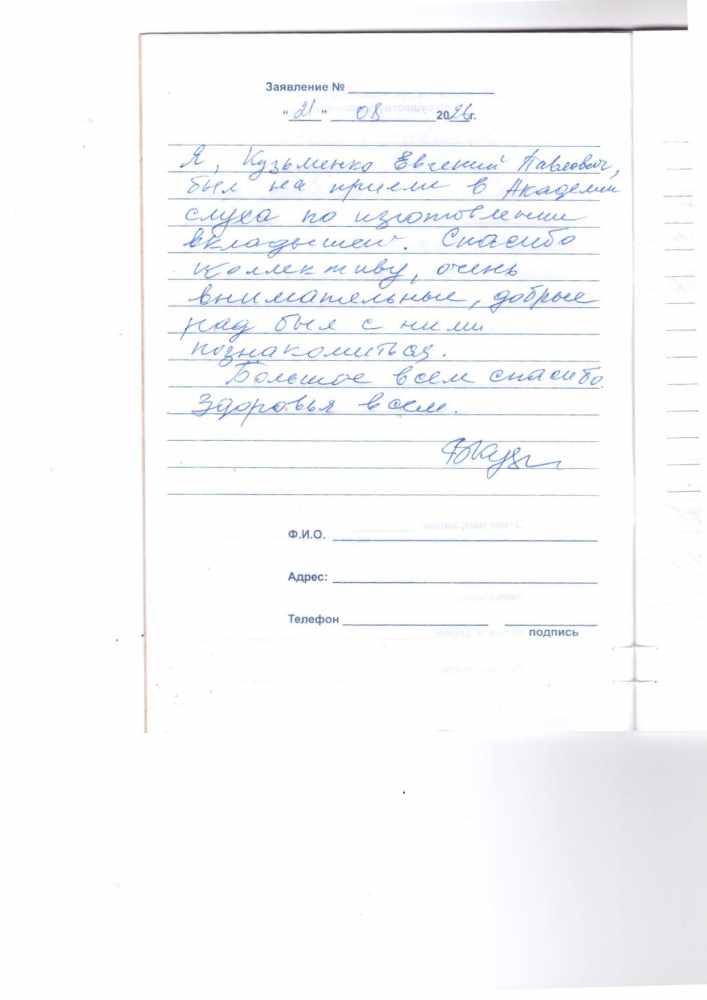 Заявление №
"21" 08 2026г.
Я, Кузьменко Евгений Павлович,
был на приеме в Академии
слуха по изготовлении
вкладышей. Спасибо
коллективу, очень
внимательные, добрые
рад был с ними
познакомиться.
Большое всем спасибо
Здоровья всем.
Ф.И.О.
Адрес:
Телефон
подпись